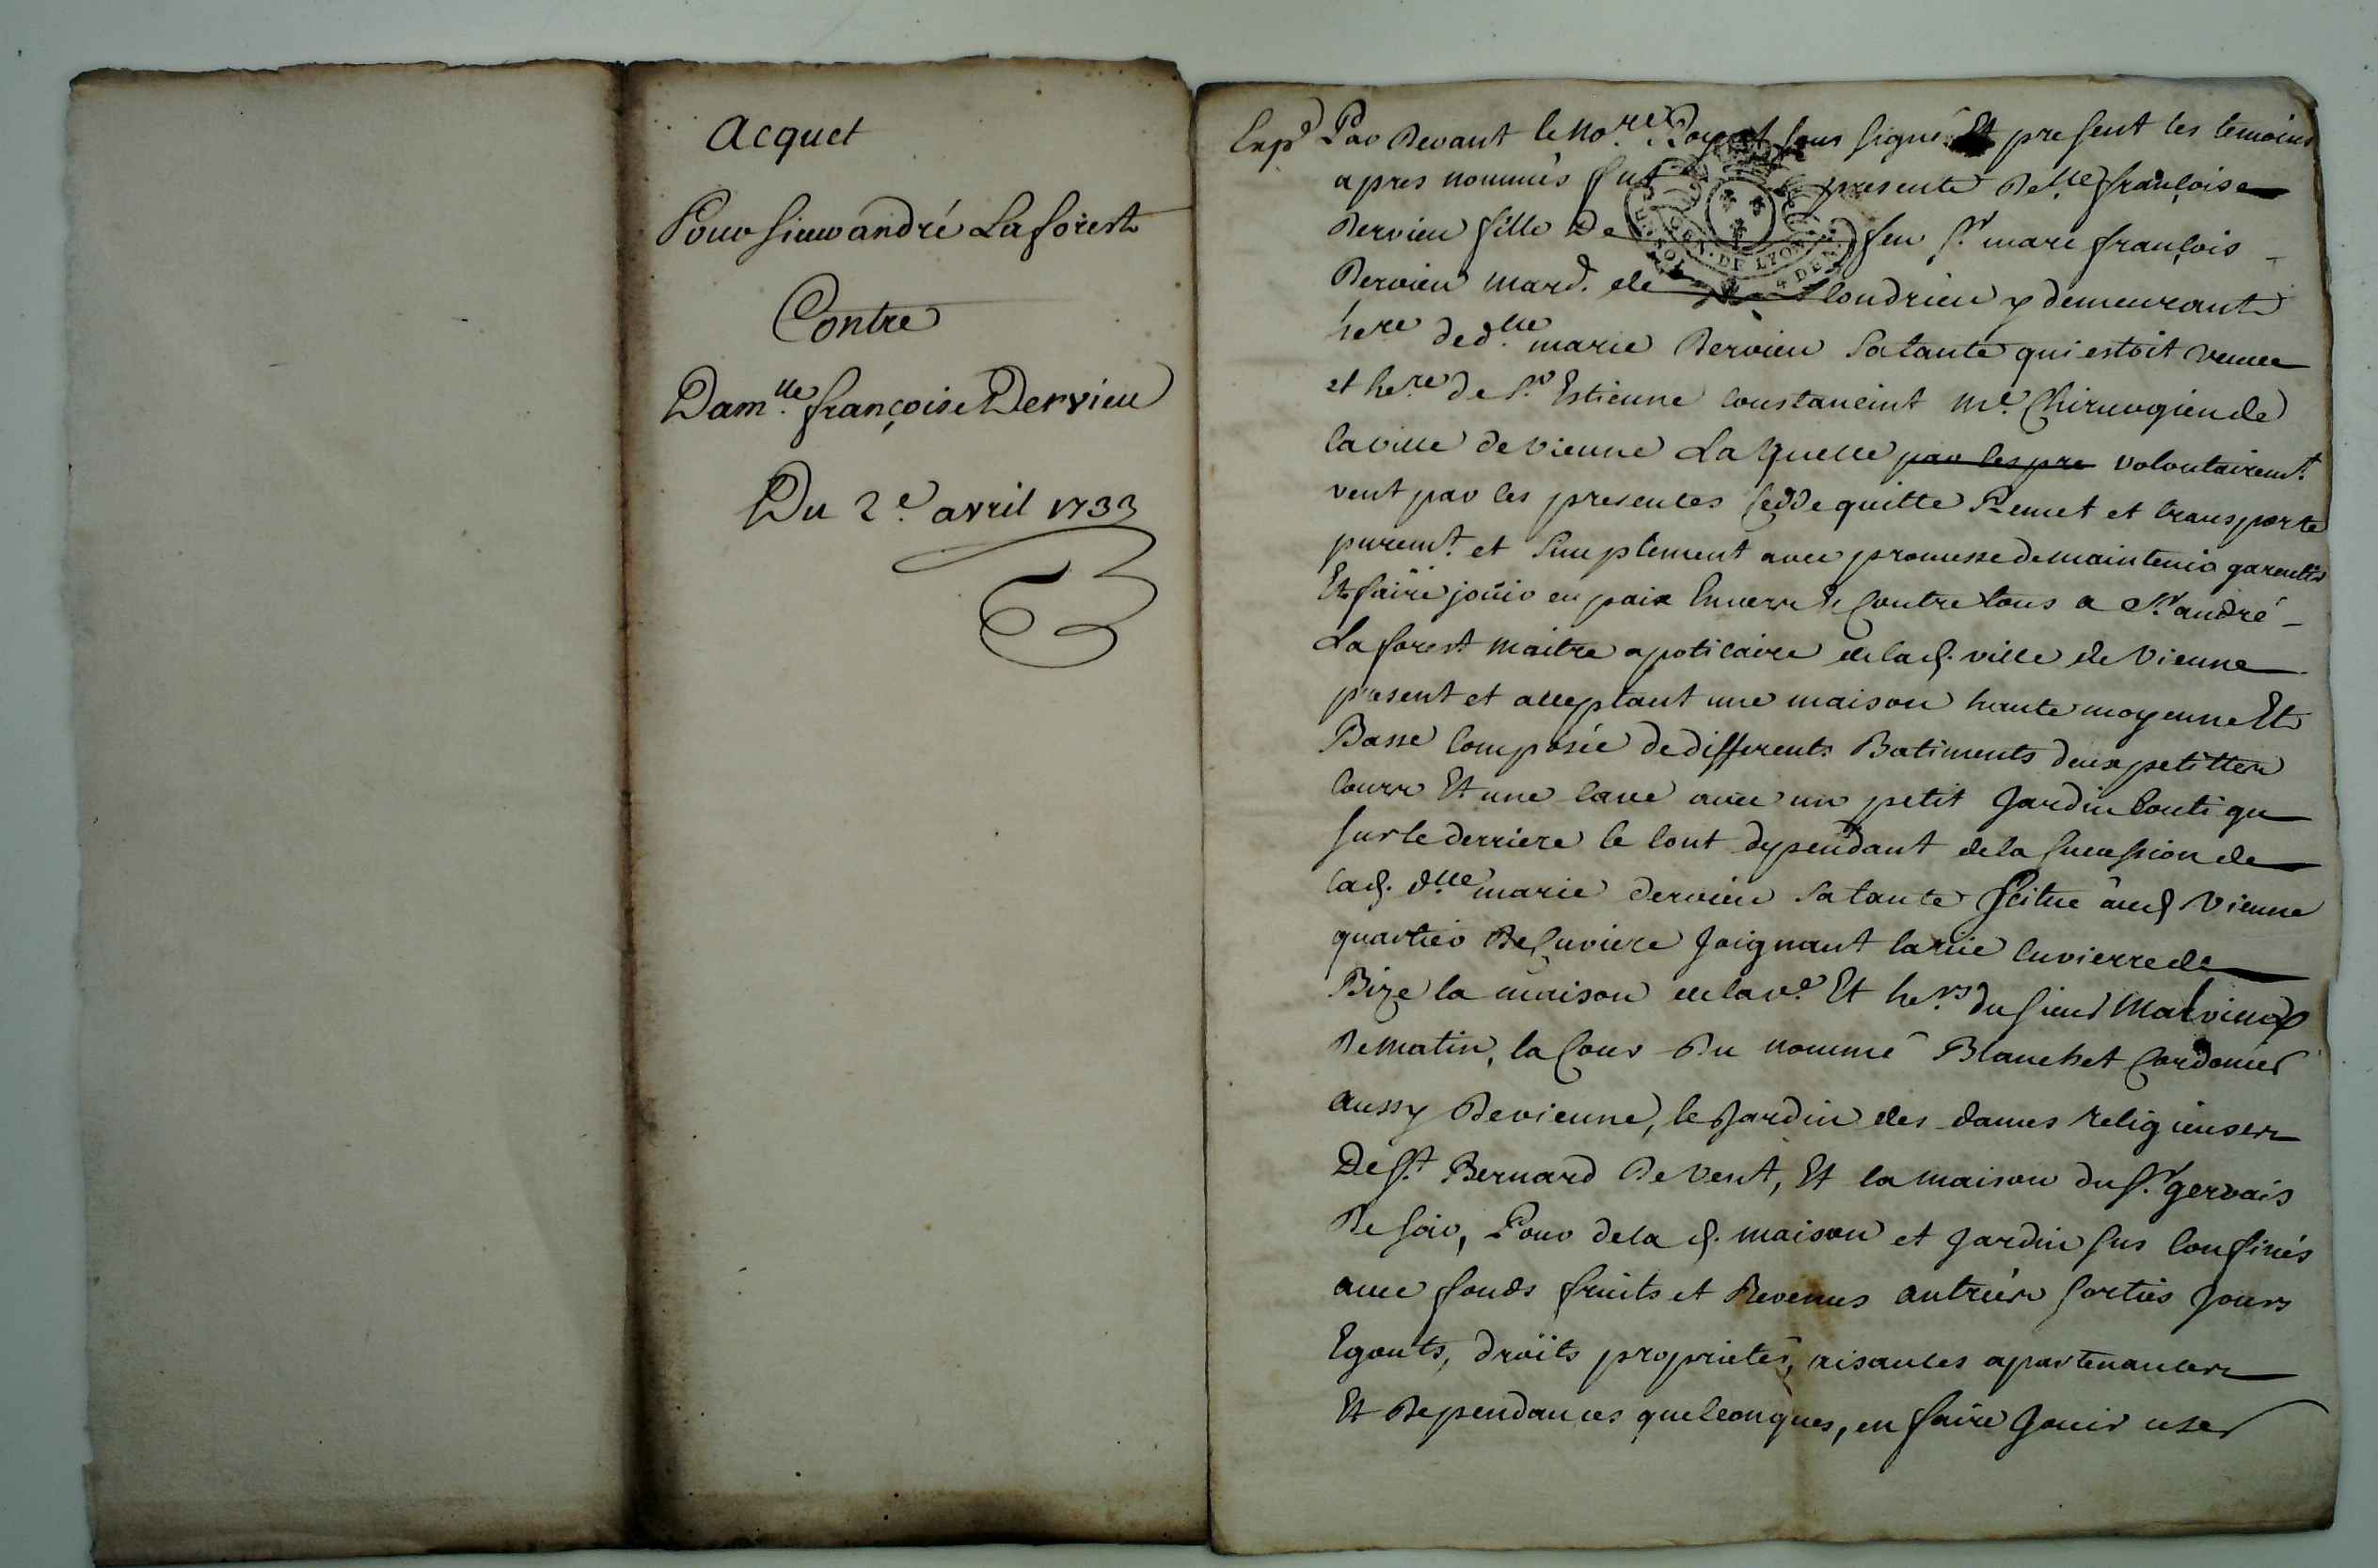 Acquet
Pour sieur andré Laforest
Contre
Dam.lle françoise Dervieu
Du 2.e avril 1733
Exp.d Par Devant le No.re Royal sous signé Et present les temoins
apres nommés fut presente De.lle françoise
Dervieu fille De feu S.r marc françois
Dervieu mard. de Condrieu y demeurant
he.re de d.lle marie Dervieu sa tante qui estoit veuve
et he.re de S.r Estienne Coustaneint M.e Chirurgien de
la ville de Vienne Laquelle par les pre volontairem.t
vent par les presentes cedde quitte Remet et transporte
purem.t et simplement avec promesse de maintenir garentir
Et faire joüir en paix Envers & Contre tous a S.r andré
Laforest maitre apoticaire de lad. ville de Vienne
present et acceptant une maison haute moyenne Et
Basse composée de differents Batiments deux petittes
cours Et une cave avec un petit Jardin contigu
sur le derriere le tout dependant de la succession de
lad. d.lle marie dervieu sa tante scitue aud Vienne
quartier De Cuviere Joignant la rüe Cuvierre de
Bize la maison de la v.e Et he.rs du sieur Malvieux
De matin, la Cour Du nommé Blanchet Cordonier
aussy De vienne, le Jardin des dames religieuses
De S.t Bernard De Vent, Et la maison du S.r gervais
De soir, Pour de la d. maison et Jardin sus confinés
avec fonds fruits et Revenus antrées sorties Jours
Egouts, droits proprietés, aisances apartenances
Et Dependances quelconques, en faire Jouir user
GEN. DE LYON